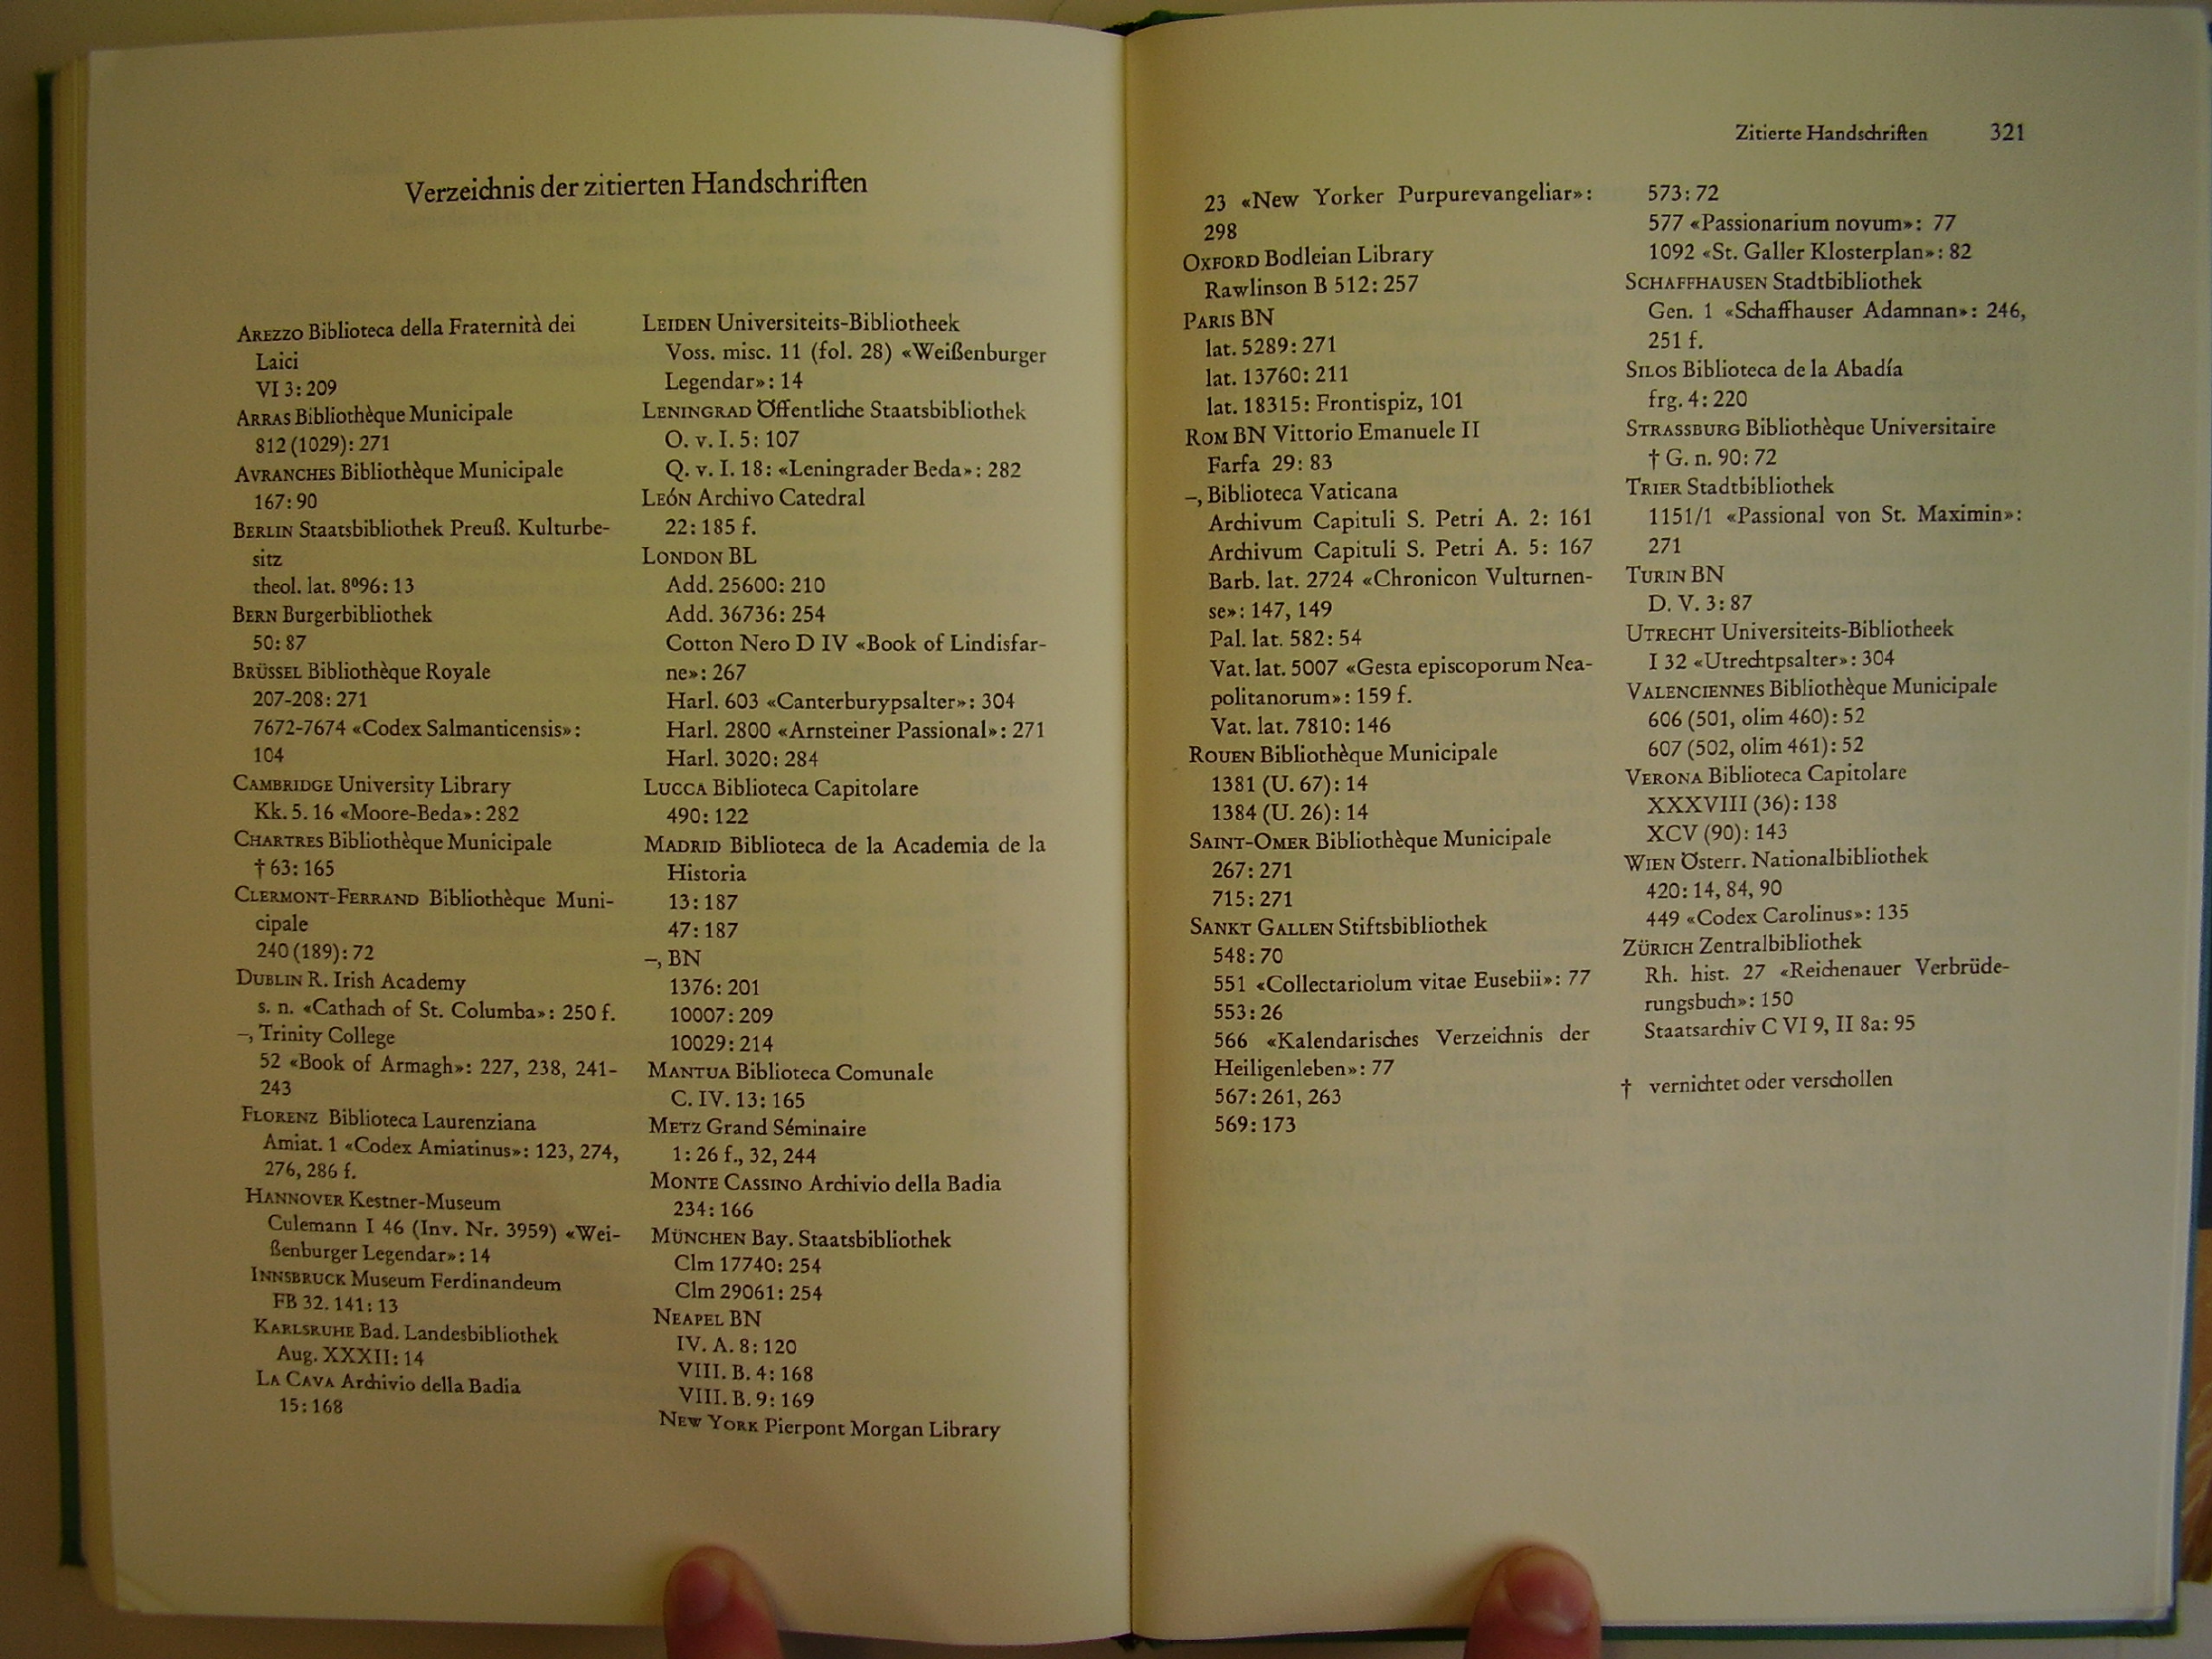 Verzeichnis der zitierten Handschriften
AREZZO Biblioteca della Fraternità dei
Laici
VI 3: 209
ARRAS Bibliothèque Municipale
812 (1029): 271
AVRANCHES Bibliothèque Municipale
167: 90
BERLIN Staatsbibliothek Preuß. Kulturbe-
sitz
theol. lat. 8⁰96: 13
BERN Burgerbibliothek
50: 87
BRÜSSEL Bibliothèque Royale
207-208: 271
7672-7674 «Codex Salmanticensis»:
104
CAMBRIDGE University Library
Kk. 5. 16 «Moore-Beda»: 282
CHARTRES Bibliothèque Municipale
† 63: 165
CLERMONT-FERRAND Bibliothèque Muni-
cipale
240 (189): 72
DUBLIN R. Irish Academy
s. n. «Cathach of St. Columba»: 250 f.
–, Trinity College
52 «Book of Armagh»: 227, 238, 241-
243
FLORENZ Biblioteca Laurenziana
Amiat. 1 «Codex Amiatinus»: 123, 274,
276, 286 f.
HANNOVER Kestner-Museum
Culemann I 46 (Inv. Nr. 3959) «Wei-
ßenburger Legendar»: 14
INNSBRUCK Museum Ferdinandeum
FB 32. 141: 13
KARLSRUHE Bad. Landesbibliothek
Aug. XXXII: 14
LA CAVA Archivio della Badia
15: 168
LEIDEN Universiteits-Bibliotheek
Voss. misc. 11 (fol. 28) «Weißenburger
Legendar»: 14
LENINGRAD Öffentliche Staatsbibliothek
O. v. I. 5: 107
Q. v. I. 18: «Leningrader Beda»: 282
LEÓN Archivo Catedral
22: 185 f.
LONDON BL
Add. 25600: 210
Add. 36736: 254
Cotton Nero D IV «Book of Lindisfar-
ne»: 267
Harl. 603 «Canterburypsalter»: 304
Harl. 2800 «Arnsteiner Passional»: 271
Harl. 3020: 284
LUCCA Biblioteca Capitolare
490: 122
MADRID Biblioteca de la Academia de la
Historia
13: 187
47: 187
–, BN
1376: 201
10007: 209
10029: 214
MANTUA Biblioteca Comunale
C. IV. 13: 165
METZ Grand Séminaire
1: 26 f., 32, 244
MONTE CASSINO Archivio della Badia
234: 166
MÜNCHEN Bay. Staatsbibliothek
Clm 17740: 254
Clm 29061: 254
NEAPEL BN
IV. A. 8: 120
VIII. B. 4: 168
VIII. B. 9: 169
NEW YORK Pierpont Morgan Library
Zitierte Handschriften 321
23 «New Yorker Purpurevangeliar»:
298
OXFORD Bodleian Library
Rawlinson B 512: 257
PARIS BN
lat. 5289: 271
lat. 13760: 211
lat. 18315: Frontispiz, 101
ROM BN Vittorio Emanuele II
Farfa 29: 83
–, Biblioteca Vaticana
Archivum Capituli S. Petri A. 2: 161
Archivum Capituli S. Petri A. 5: 167
Barb. lat. 2724 «Chronicon Vulturnen-
se»: 147, 149
Pal. lat. 582: 54
Vat. lat. 5007 «Gesta episcoporum Nea-
politanorum»: 159 f.
Vat. lat. 7810: 146
ROUEN Bibliothèque Municipale
1381 (U. 67): 14
1384 (U. 26): 14
SAINT-OMER Bibliothèque Municipale
267: 271
715: 271
SANKT GALLEN Stiftsbibliothek
548: 70
551 «Collectariolum vitae Eusebii»: 77
553: 26
566 «Kalendarisches Verzeichnis der
Heiligenleben»: 77
567: 261, 263
569: 173
573: 72
577 «Passionarium novum»: 77
1092 «St. Galler Klosterplan»: 82
SCHAFFHAUSEN Stadtbibliothek
Gen. 1 «Schaffhauser Adamnan»: 246,
251 f.
SILOS Biblioteca de la Abadía
frg. 4: 220
STRASSBURG Bibliothèque Universitaire
† G. n. 90: 72
TRIER Stadtbibliothek
1151/1 «Passional von St. Maximin»:
271
TURIN BN
D. V. 3: 87
UTRECHT Universiteits-Bibliotheek
I 32 «Utrechtpsalter»: 304
VALENCIENNES Bibliothèque Municipale
606 (501, olim 460): 52
607 (502, olim 461): 52
VERONA Biblioteca Capitolare
XXXVIII (36): 138
XCV (90): 143
WIEN Österr. Nationalbibliothek
420: 14, 84, 90
449 «Codex Carolinus»: 135
ZÜRICH Zentralbibliothek
Rh. hist. 27 «Reichenauer Verbrüde-
rungsbuch»: 150
Staatsarchiv C VI 9, II 8a: 95
† vernichtet oder verschollen